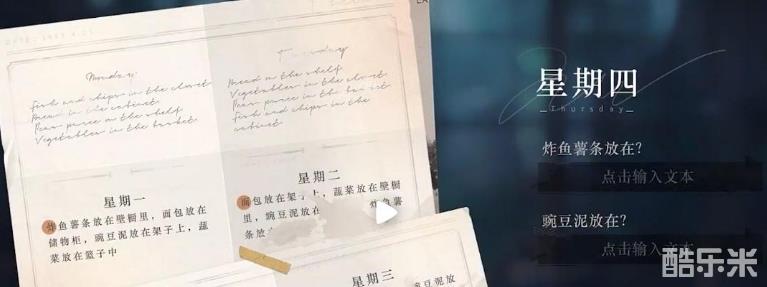 Monday
Fish and chips in the closet
Bread in the cabinet
Peas puree on the shelf
Vegetables in the basket
Tuesday
Bread on the shelf
Vegetables in the closet
Peas puree in the basket
Fish and chips in the
cabinet
星期一
炸鱼薯条放在壁橱里,面包放在
储物柜,豌豆泥放在架子上,蔬
菜放在篮子中
星期二
面包放在架子上,蔬菜放在壁橱
里,豌豆泥放在 炸鱼薯
条放在
星期三
豌豆泥放
星期四
Thursday
炸鱼薯条放在?
点击输入文本
豌豆泥放在?
点击输入文本
酷乐米